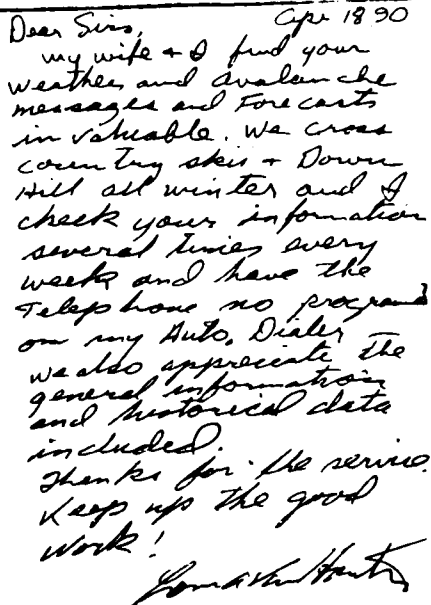 Apr 18 90
Dear Sirs,
my wife + I find your
weather and avalanche
messages and Forecasts
invaluable. We cross
country skis + Down
Hill all winter and I
check your information
several times every
weeks and have the
Telephone no program'd
on my Auto. Dialer
we also appreciate the
general information
and historical data
included.
Thanks for the service.
Keep up the good
work!